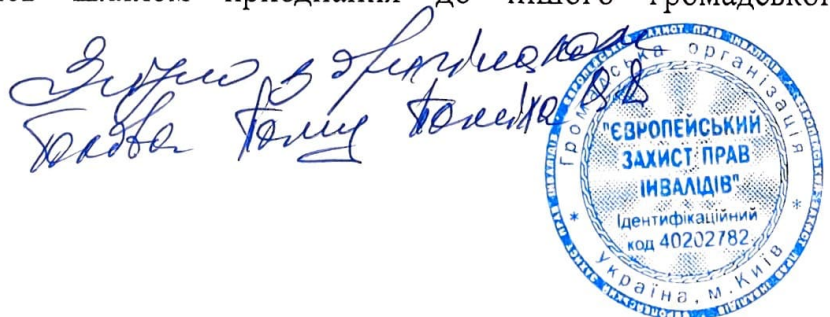 шляхом приєднання до іншого громадської
Згідно з оригіналом
Голова
ЄВРОПЕЙСЬКИЙ ЗАХИСТ ПРАВ ІНВАЛІДІВ
Громадська організація
"ЄВРОПЕЙСЬКИЙ
ЗАХИСТ ПРАВ
ІНВАЛІДІВ"
Ідентифікаційний
код 40202782
* Україна, м. Київ *